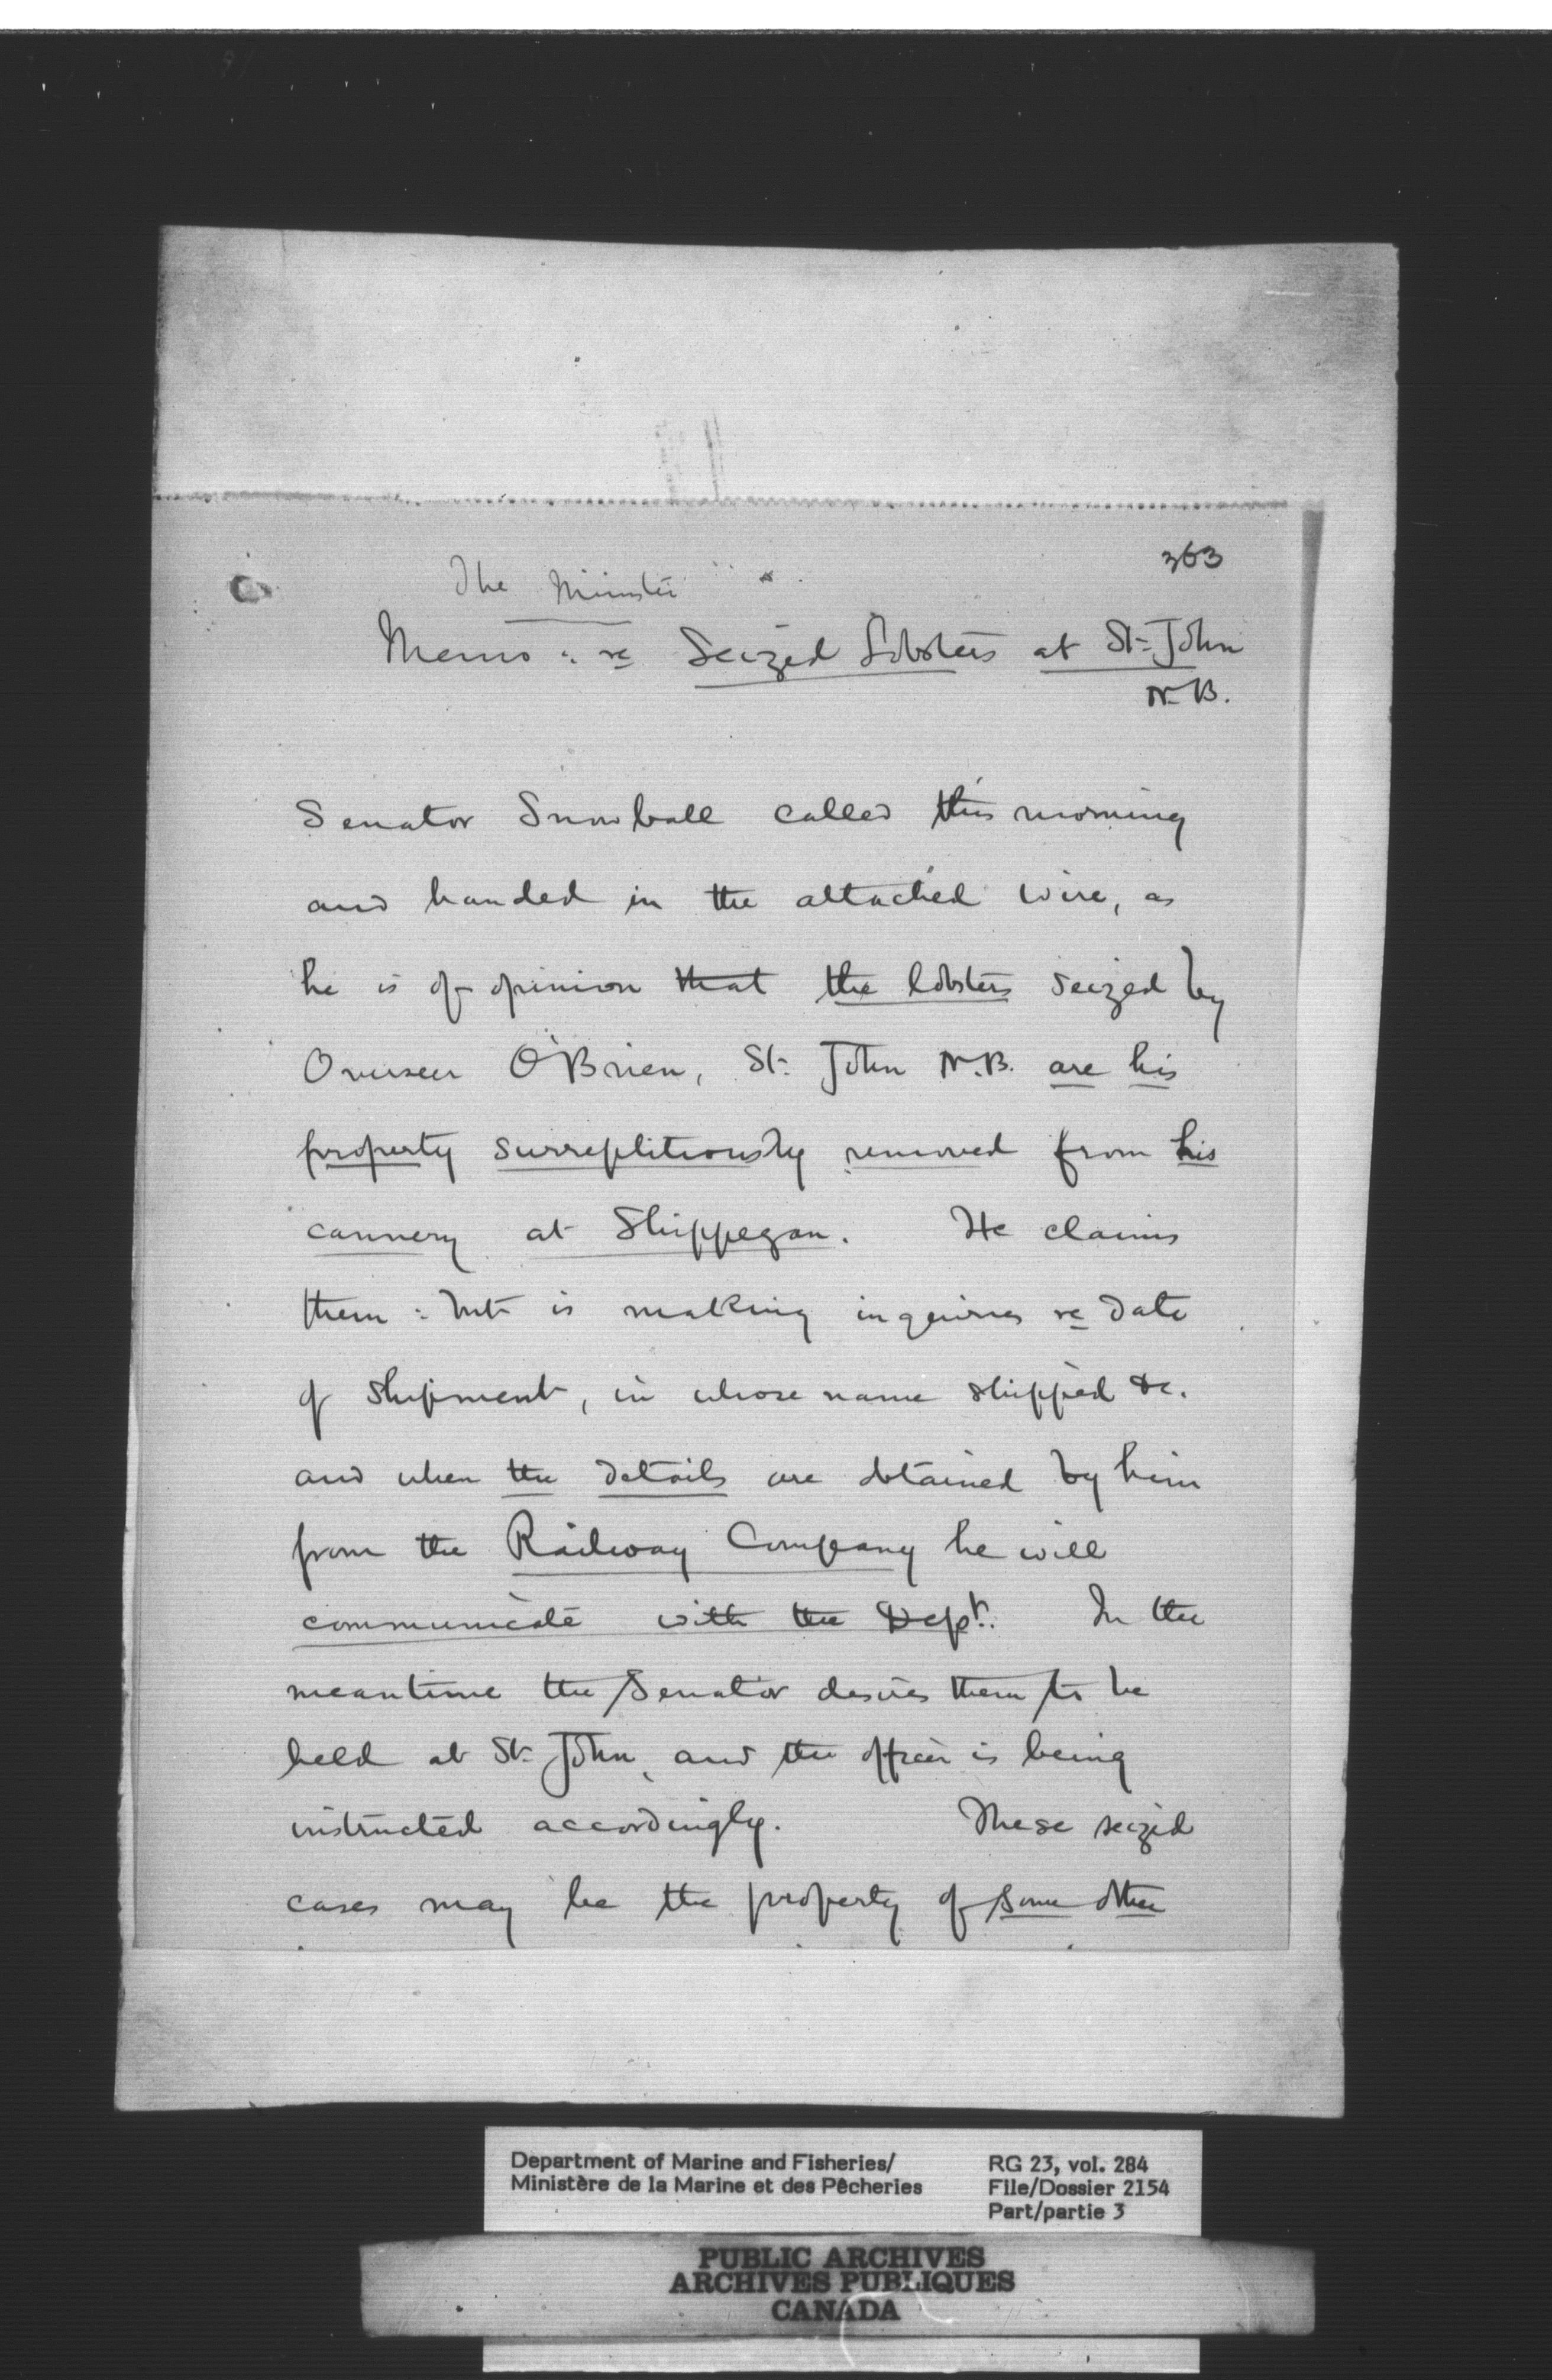 363
The Minister
Memo: re Seized Lobsters at St. John
N.B.
Senator Snowball called this morning
and handed in the attached wire, as
he is of opinion that the lobsters seized by
Overseer O'Brien, St. John N.B. are his
property surreptitiously removed from his
cannery at Shippegan. He claims
them: but is making inquiries re date
of shipment, in whose name shipped &c.
and when the details are obtained by him
from the Railway Company he will
communicate with the Dept. In the
meantime the Senator desires them to be
held at St. John, and the officer is being
instructed accordingly. These seized
cases may be the property of some other
Department of Marine and Fisheries/
Ministère de la Marine et des Pêcheries
RG 23, vol. 284
File/Dossier 2154
Part/partie 3
PUBLIC ARCHIVES
ARCHIVES PUBLIQUES
CANADA